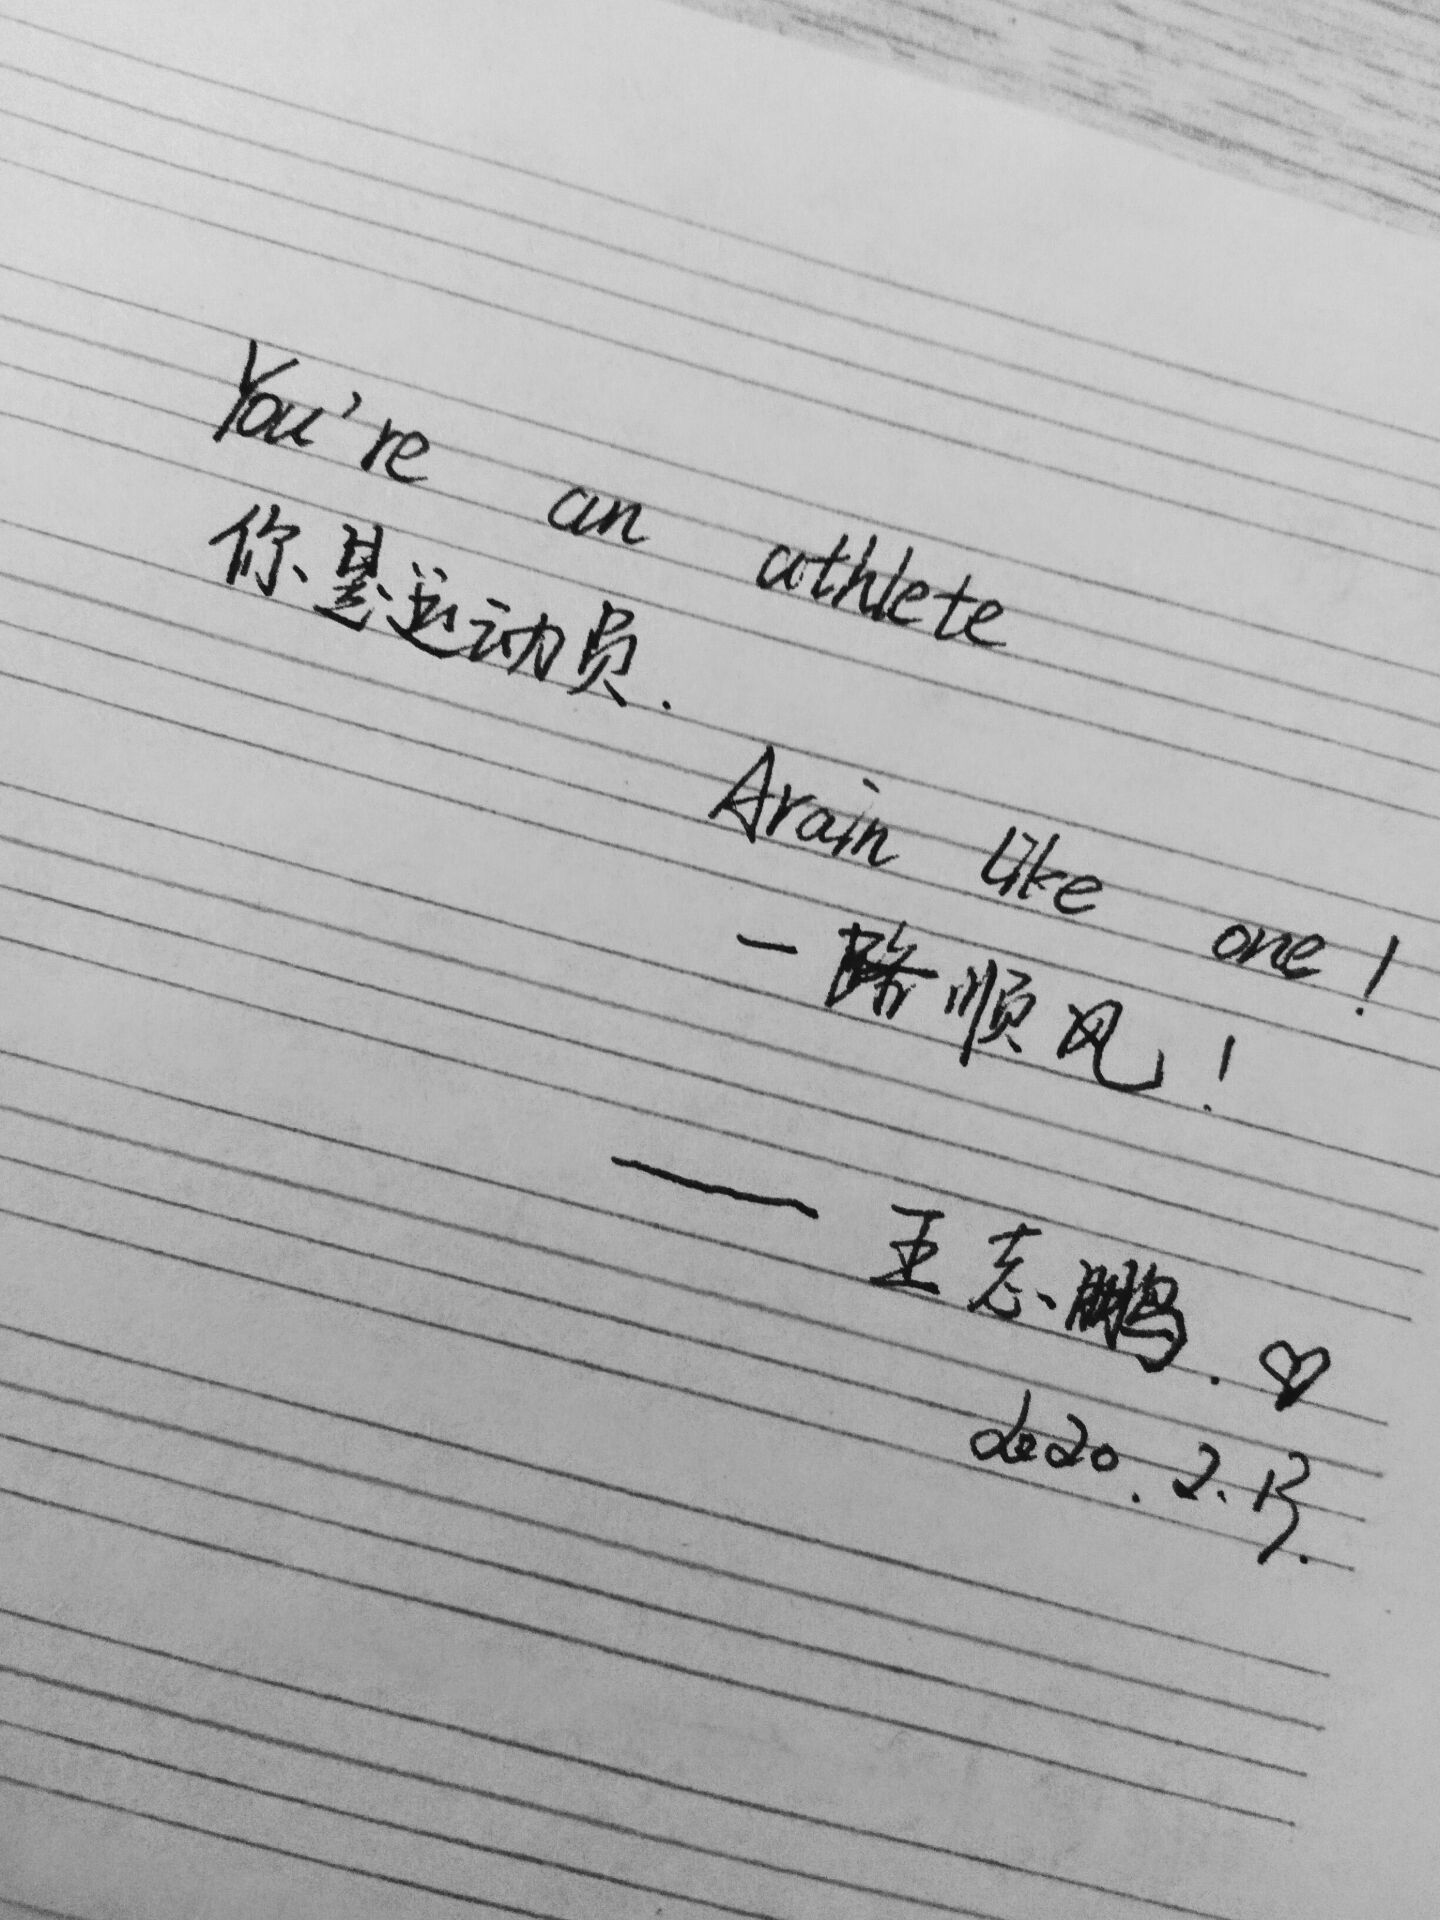 You're an athlete
你是运动员.
Arain like one!
一路顺风!
—— 王志鹏.♡
2020.2.13.